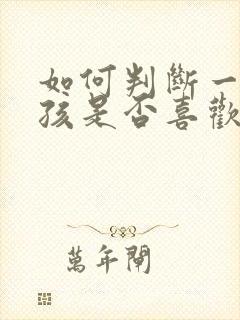 如何判斷一
孩是否喜歡
萬年閘